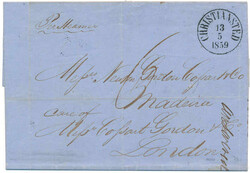 Per Steamer
CHRISTIANSTED
13
5
1859
6
Messrs Newton Gordon Cossart & Co
Madeira
care of
Messrs Cossart Gordon &
London